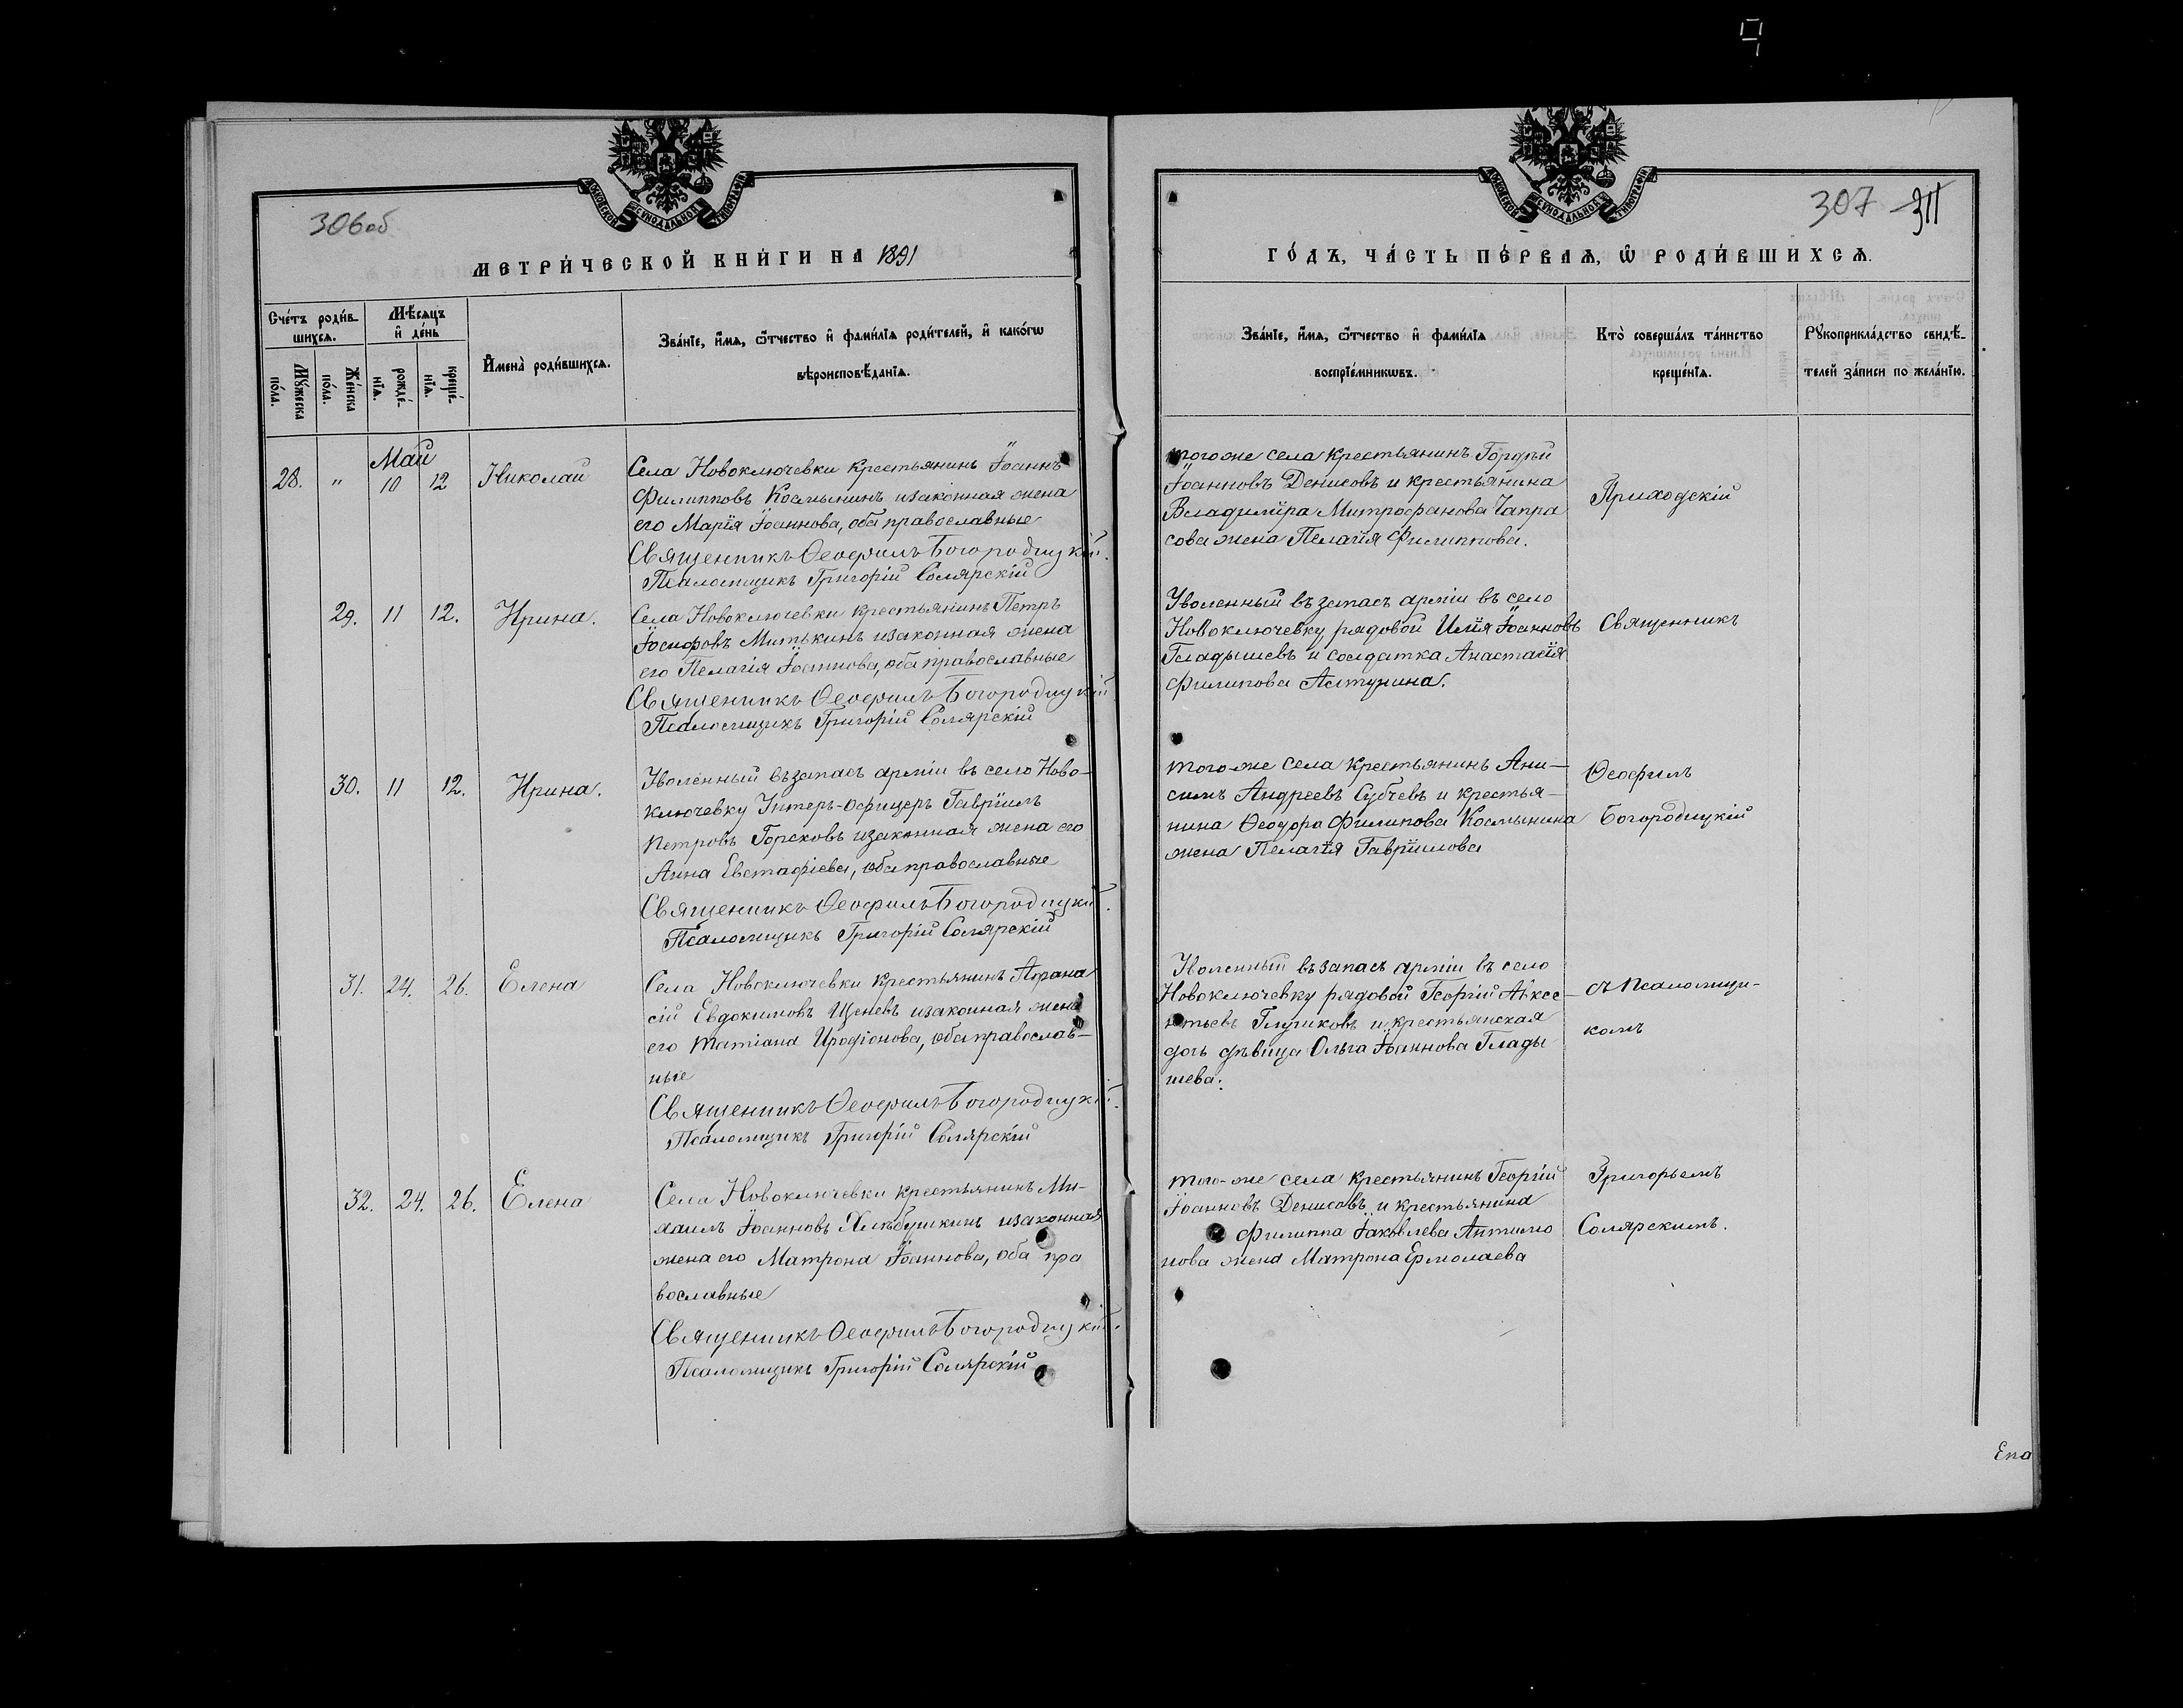 306 об
МОСКОВСКОЙ СУНОДАЛЬНОЙ ТИПОГРАФІИ
МЕТРИ́ЧЕСКОЙ КНИ́ГИ НА 1891
Сче́тъ роди́в-
шихсѧ.
Мѣ́сѧцъ
и҆ де́нь
Мꙋ́жеска
по́ла.
Же́нска
по́ла.
рожде́-
нїѧ.
креще́-
нїѧ.
И҆мена̀ роди́вшихсѧ.
Зва́нїе, и҆́мѧ, ѻ҆́тчество и҆ фами́лїѧ роди́телей, и҆ како́гѡ
вѣроисповѣ́данїѧ.
Май
28. " 10 12 Николай
Села Новоключевки крестьянинъ Іоаннъ
Филипповъ Космынинъ и законная жена
его Марія Іоаннова, оба православные
Священникъ Ѳеофилъ Богородицкій.
Псаломщикъ Григорій Солярскій
29. 11 12. Ирина.
Села Новоключевки крестьянинъ Петръ
Іосифовъ Митькинъ и законная жена
его Пелагія Іоаннова, оба православные
Священникъ Ѳеофилъ Богородицкій
Псаломщикъ Григорій Солярскій
30. 11 12. Ирина.
Уволенный въ запасъ арміи въ село Ново-
ключевку Унтеръ-офицеръ Гавріилъ
Петровъ Горековъ и законная жена его
Анна Евстафіева, оба православные
Священникъ Ѳеофилъ Богородицкій.
Псаломщикъ Григорій Солярскій
31. 24. 26. Елена
Села Новоключевки крестьянинъ Афана
сій Евдокимовъ Щеневъ и законная жена
его Татіана Иродіонова, оба православ-
ные
Священникъ Ѳеофилъ Богородицкій.
Псаломщикъ Григорій Солярскій
32. 24. 26. Елена
Села Новоключевки крестьянинъ Ми-
хаилъ Іоанновъ Хлѣбушкинъ и законная
жена его Матрона Іоаннова, оба пра
вославные
Священникъ Ѳеофилъ Богородицкій.
Псаломщикъ Григорій Солярскій
307 311
МОСКОВСКОЙ СУНОДАЛЬНОЙ ТИПОГРАФІИ
ГО́ДЪ, ЧА́СТЬ ПЕ́РВАѦ, Ѡ҆ РОДИ́ВШИХСѦ.
Зва́нїе, и҆́мѧ, ѻ҆́тчество и҆ фами́лїѧ
воспрїе́мникѡвъ.
Кто̀ соверша́лъ та́инство
креще́нїѧ.
Рꙋкоприкла́дство свидѣ́-
телей за́писи по жела́нїю.
того же села крестьянинъ Гордѣй
Іоанновъ Денисовъ и крестьянина
Владиміра Митрофанова Чапра
сова жена Пелагія Филиппова.
Уволенный въ запасъ арміи въ село
Новоключевку рядовой Илія Іоанновъ
Гладышевъ и солдатка Анастасія
Филипова Алтунина.
того-же села крестьянинъ Ани-
симъ Андреевъ Субчевъ и крестья-
нина Ѳеодора Филипова Космынина
жена Пелагія Гавріилова
Уволенный въ запасъ арміи въ село
Новоключевку рядовой Георгій Авксе-
нтьевъ Глушковъ и крестьянская
дочь дѣвица Ольга Іоаннова Глады
шева.
того-же села крестьянинъ Георгій
Іоанновъ Денисовъ и крестьянина
Филиппа Іаковлева Антипо
нова жена Матрона Ермолаева
Приходскій
Священникъ
Ѳеофилъ
Богородицкій
съ псаломщи-
комъ
Григорьемъ
Солярскимъ.
Епа